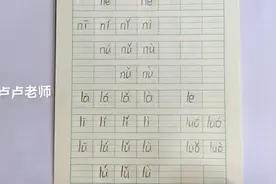 nī ní nǐ nì
nú nǔ nù
nǚ nǜ
卢卢老师
lā lá lǎ là le
lī lí lǐ lì luō luó
lū lú lǔ lù luǒ luò
lǘ lǚ lǜ